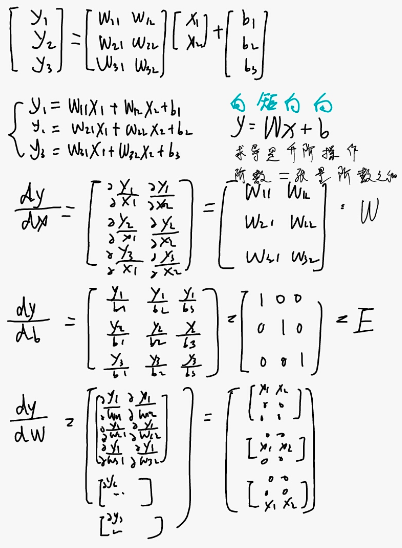 [y₁ y₂ y₃] = [w₁₁ w₁₂; w₂₁ w₂₂; w₃₁ w₃₂] [x₁ x₂] + [b₁ b₂ b₃]
y₁ = w₁₁x₁ + w₁₂x₂ + b₁
y₂ = w₂₁x₁ + w₂₂x₂ + b₂
y₃ = w₃₁x₁ + w₃₂x₂ + b₃
向 矩 向 向
y = Wx + b
求导是升阶操作
阶数 = 张量阶数之和
dy/dx = [∂y₁/∂x₁ ∂y₁/∂x₂; ∂y₂/∂x₁ ∂y₂/∂x₂; ∂y₃/∂x₁ ∂y₃/∂x₂] = [w₁₁ w₁₂; w₂₁ w₂₂; w₃₁ w₃₂] = W
dy/db = [y₁/b₁ y₁/b₂ y₁/b₃; y₂/b₁ y₂/b₂ y₂/b₃; y₃/b₁ y₃/b₂ y₃/b₃] = [1 0 0; 0 1 0; 0 0 1] = E
dy/dW = [[∂y₁/∂w₁₁ ∂y₁/∂w₁₂; ∂y₁/∂w₂₁ ∂y₁/∂w₂₂; ∂y₁/∂w₃₁ ∂y₁/∂w₃₂] [∂y₂ ...] [∂y₃ ...]] = [[x₁ x₂; 0 0; 0 0] [0 0; x₁ x₂; 0 0] [0 0; 0 0; x₁ x₂]]